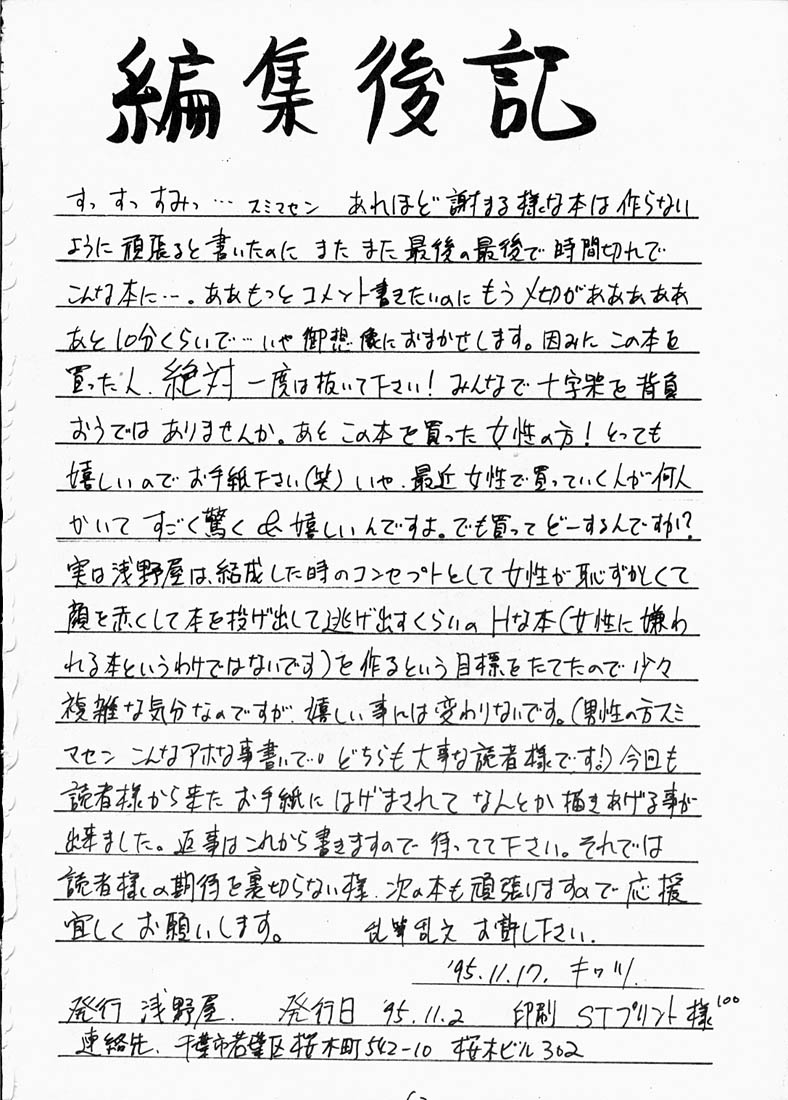 編集後記
すっ すっ すみっ … スミマセン あれほど 謝まる様な本は作らない
ように頑張ると書いたのに また また 最後の最後で時間切れで
こんな本に…。ああもっとコメント書きたいのに もう〆切がああああ
あと10分くらいで…いや御想像におまかせします。因みに この本を
買った人、絶対 一度は抜いて下さい! みんなで十字架を背負
おうではありませんか。あと この本を買った女性の方! とっても
嬉しいのでお手紙下さい(笑) いや、最近女性で買っていく人が何人
かいて すごく驚く & 嬉しいんですよ。でも買ってどーするんですか?
実は浅野屋は、結成した時のコンセプトとして女性が恥ずかしくて
顔を赤くして本を投げ出して逃げ出すくらいのHな本(女性に嫌わ
れる本というわけではないです)を作るという目標をたてたので少々
複雑な気分なのですが、嬉しい事には変わりないです。(男性の方スミ
マセン こんなアホな事書いて。どちらも大事な読者様です!) 今回も
読者様から来たお手紙にはげまされて なんとか描きあげる事が
出来ました。返事はこれから書きますので待ってて下さい。それでは
読者様の期待を裏切らない様、次の本も頑張りますので応援
宜しくお願いします。 乱筆乱文 お許し下さい.
'95.11.17. キツツ.
発行 浅野屋. 発行日 '95.11.2 印刷 STプリント様 100
連絡先. 千葉市若葉区桜木町542-10 桜木ビル302